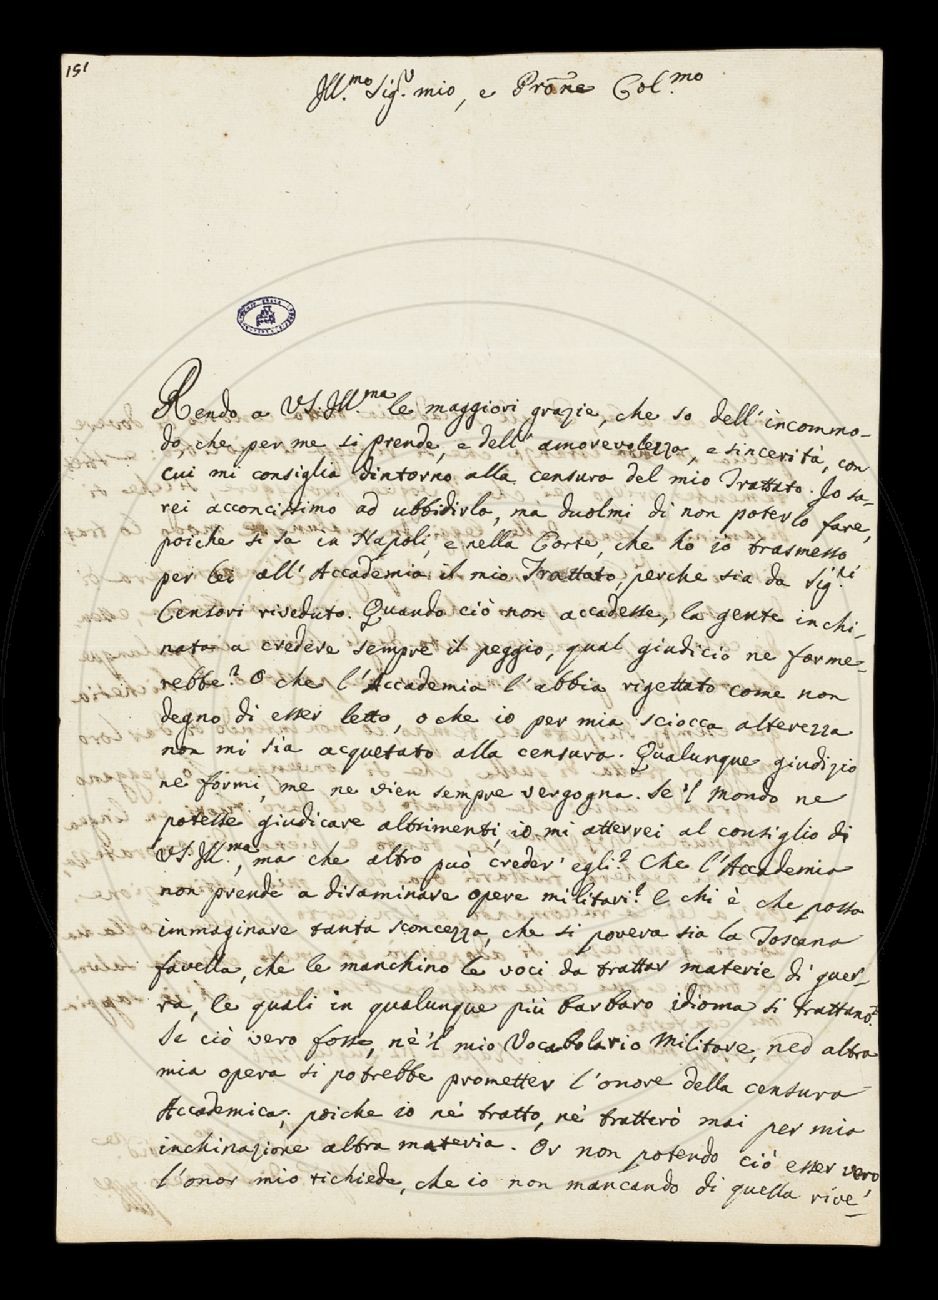 151
Ill.mo Sig.r mio, e Pròne Col.mo
Rendo a VS. Ill.ma le maggiori grazie, che so dell'incommo-
do, che per me si prende, e dell'amorevolezza, e sincerità, con
cui mi consiglia dintorno alla censura del mio Trattato. Io sa-
rei acconcissimo ad ubbidirla, ma duolmi di non poterlo fare,
poiche si sa in Napoli, e nella Corte, che ho io trasmesso
per lei all'Accademia il mio Trattato, perche sia da Sig.ri
Censori riveduto. Quando ciò non accadesse, la gente inchi-
nata a credere sempre il peggio, qual giudicio ne forme-
rebbe? O che l'Accademia l'abbia rigettato come non
degno di esser letto, o che io per mia sciocca alterezza
non mi sia acquetato alla censura. Qualunque giudizio
ne formi, me ne vien sempre vergogna. Se 'l mondo ne
potesse giudicare altrimenti, io mi atterrei al consiglio di
VS. Ill.ma, ma che altro può creder' egli? Che l'Accademia
non prende a disaminare opere militari? E chi è che possa
immaginare tanta sconcezza, che si povera sia la Toscana
favella, che le manchino le voci da trattar materie di guer-
ra, le quali in qualunque più barbaro idioma si trattano?
Se ciò vero fosse, nè 'l mio Vocabolario Militare, ned altra
mia opera si potrebbe prometter l'onore della censura
Accademica; poiche io nè tratto, nè tratterò mai per mia
inchinazione altra materia. Or non potendo ciò esser vero
l'onor mio richiede, che io non mancando di quella rive-